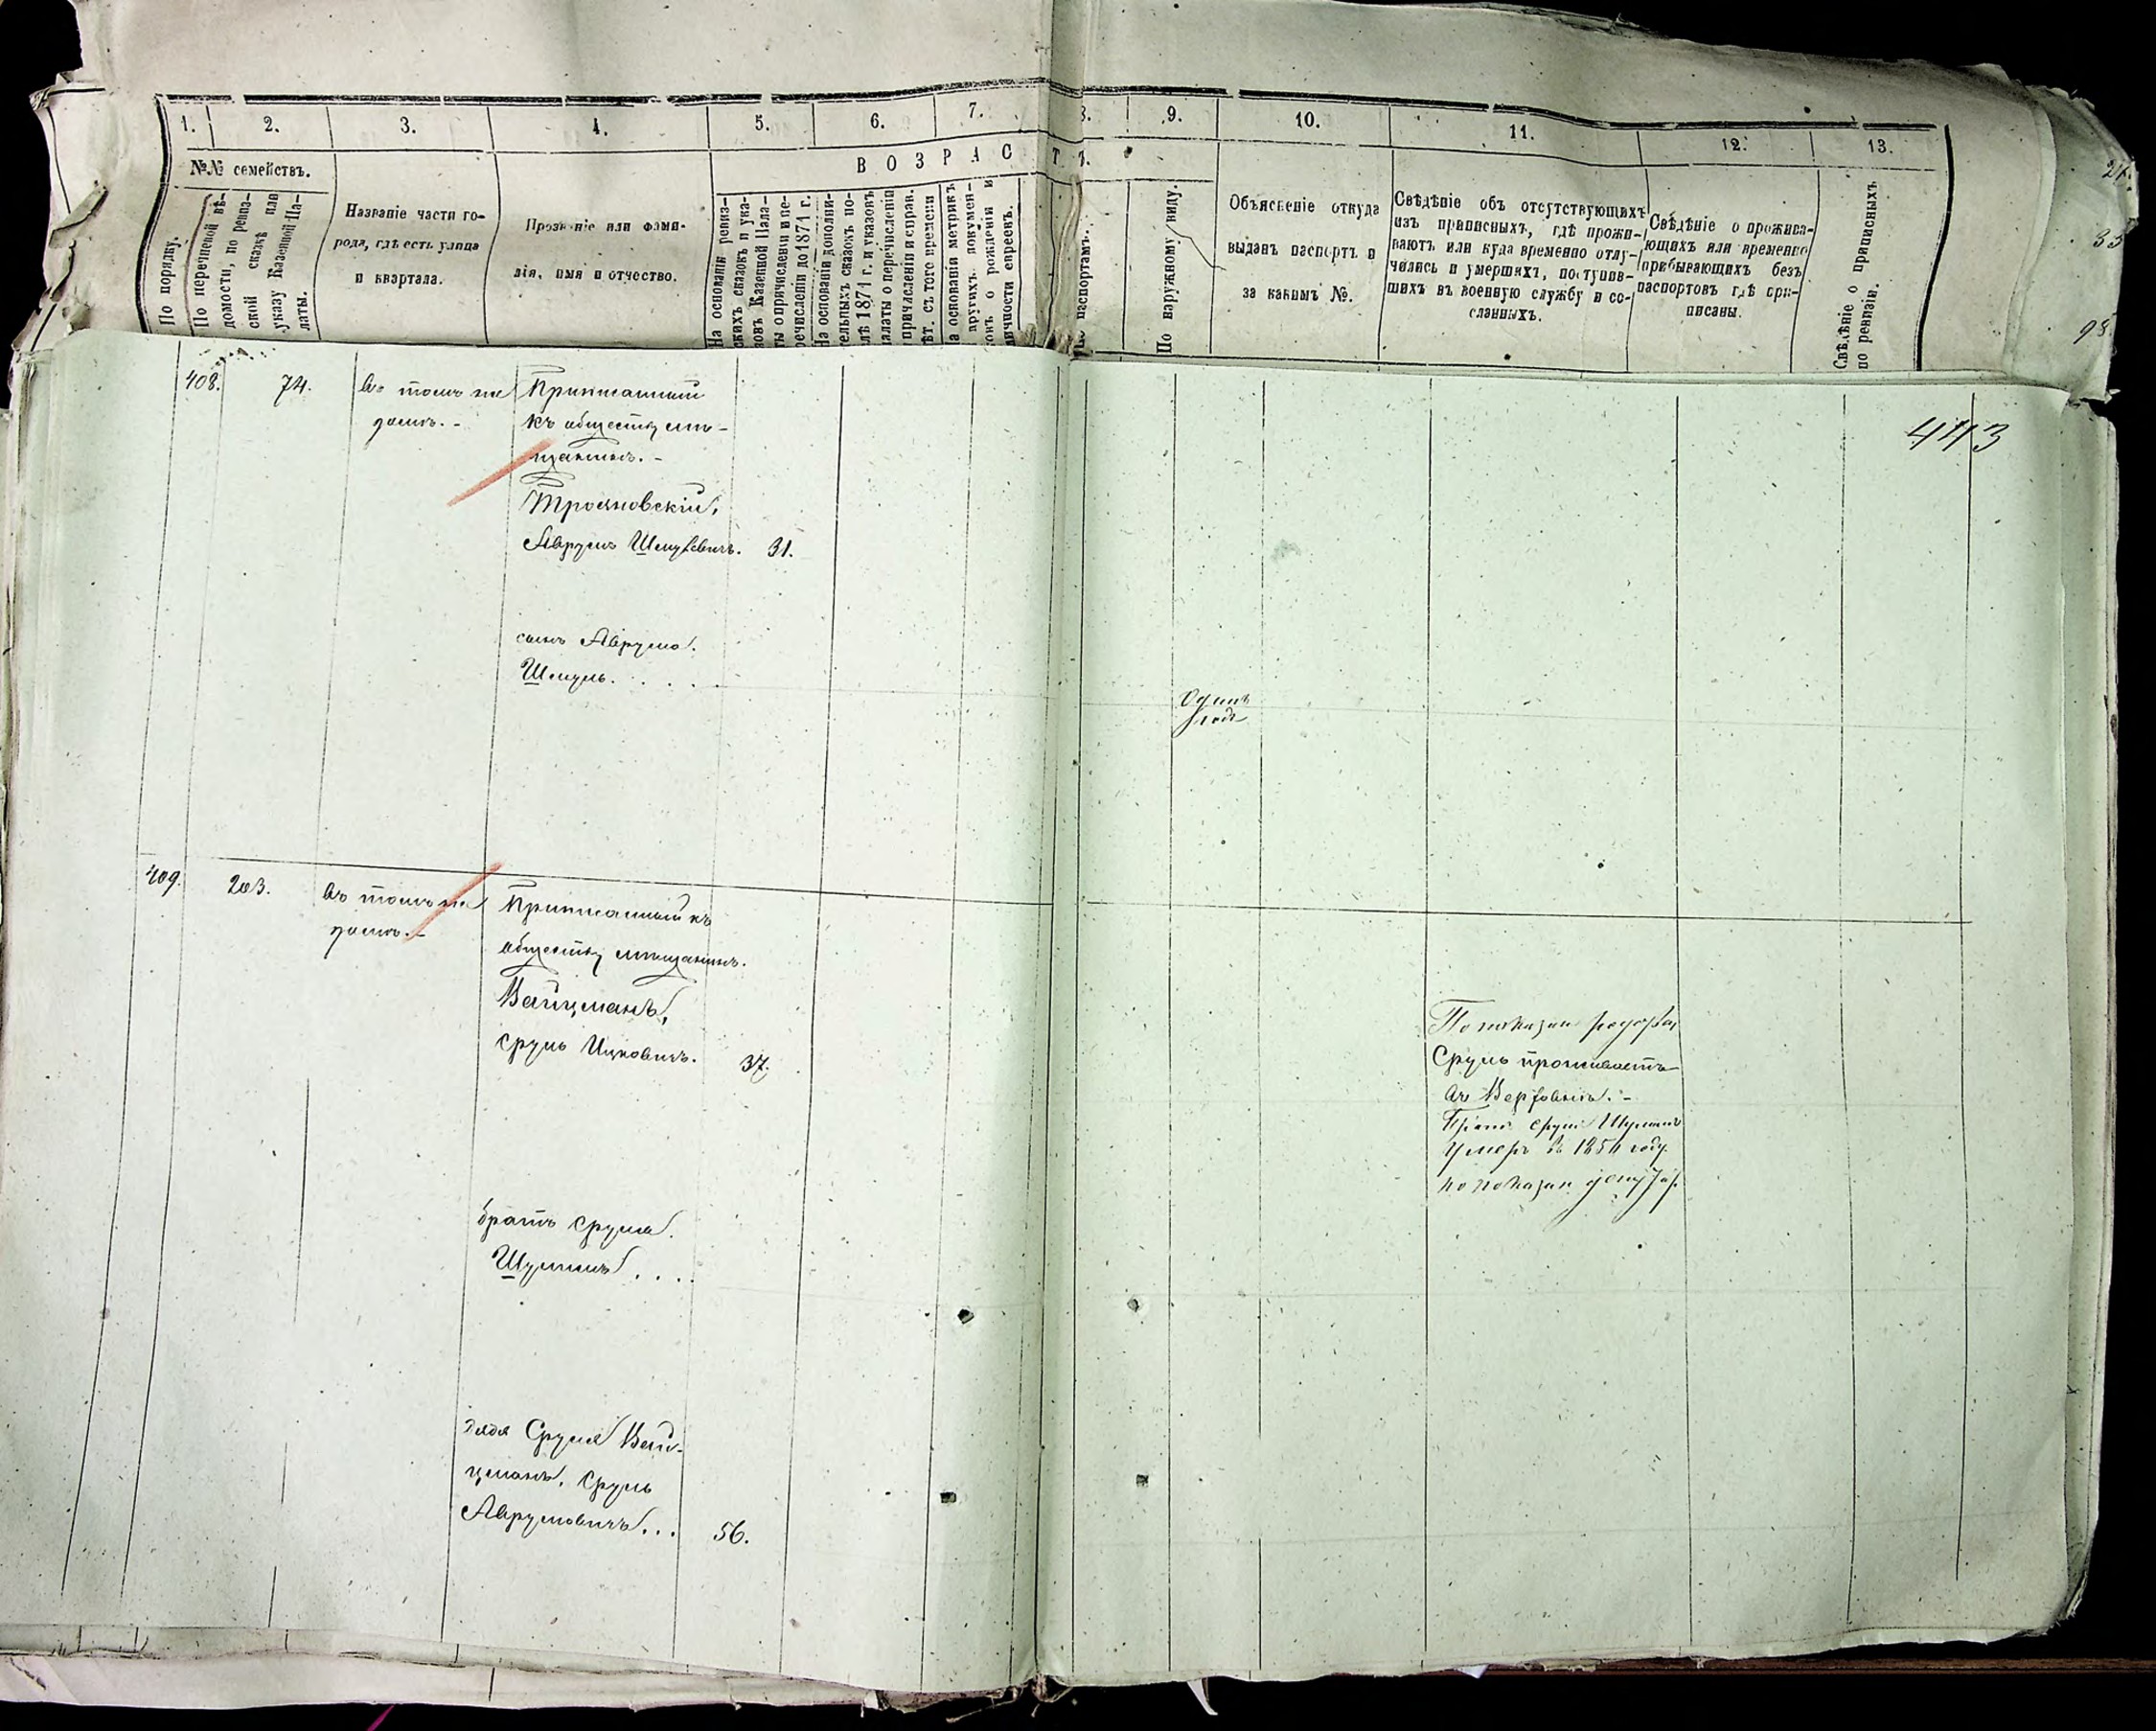 1. 2. 3. 4. 5. 6. 7. 8. 9. 10. 11. 12. 13.
№№ семействъ.
ВОЗРАСТЪ.
По порядку.
По перечневой вѣ-
домости, по ревиз-
ской сказкѣ или
указу Казенной Па-
латы.
Названіе части го-
рода, гдѣ есть улица
и квартала.
Прозваніе или фами-
лія, имя и отчество.
На основаніи ревиз-
скихъ сказокъ и ука-
зовъ Казенной Пала-
ты о причисленіи и пе-
речисленіи до 1871 г.
На основаніи дополни-
тельныхъ сказокъ по-
слѣ 1871 г. и указовъ
Палаты о перечисленіи
и причисленіи и справ.
лѣт. съ того времени
На основаніи метрикъ
и другихъ докумен-
товъ о рожденіи и
личности евреевъ.
По паспортамъ.
По наружному виду.
Объясненіе откуда
выданъ паспортъ и
за какимъ №.
Свѣдѣніе объ отсутствующихъ
изъ приписныхъ, гдѣ прожи-
ваютъ или куда временно отлу-
чились и умершихъ, поступив-
шихъ въ военную службу и со-
сланныхъ.
Свѣдѣніе о прожива-
ющихъ или временно
прибывающихъ безъ
паспортовъ гдѣ при-
писаны.
Свѣдѣніе о приписныхъ
по ревизіи.
443
408. 74. Въ томъ же
домѣ. -
Приписанный
къ обществу мѣ-
щанинъ. -
Трояновскій,
Аврумъ Шмулевичъ. 31.
сынъ Аврума.
Шмуль. . . . .
Одинъ
годъ
409. 203. Въ томъ же
домѣ. -
Приписанный къ
обществу мѣщанинъ.
Вайцманъ,
Сруль Ицковичъ. 37.
По показан
Сруль проживаетъ
въ
Братъ Сруля Шулимъ
умеръ въ 1854 году
по показан депутат.
братъ Сруля.
Шулимъ . . . .
дядя Сруля Вай-
цманъ, Сруль
Аврумовичъ. . . 56.